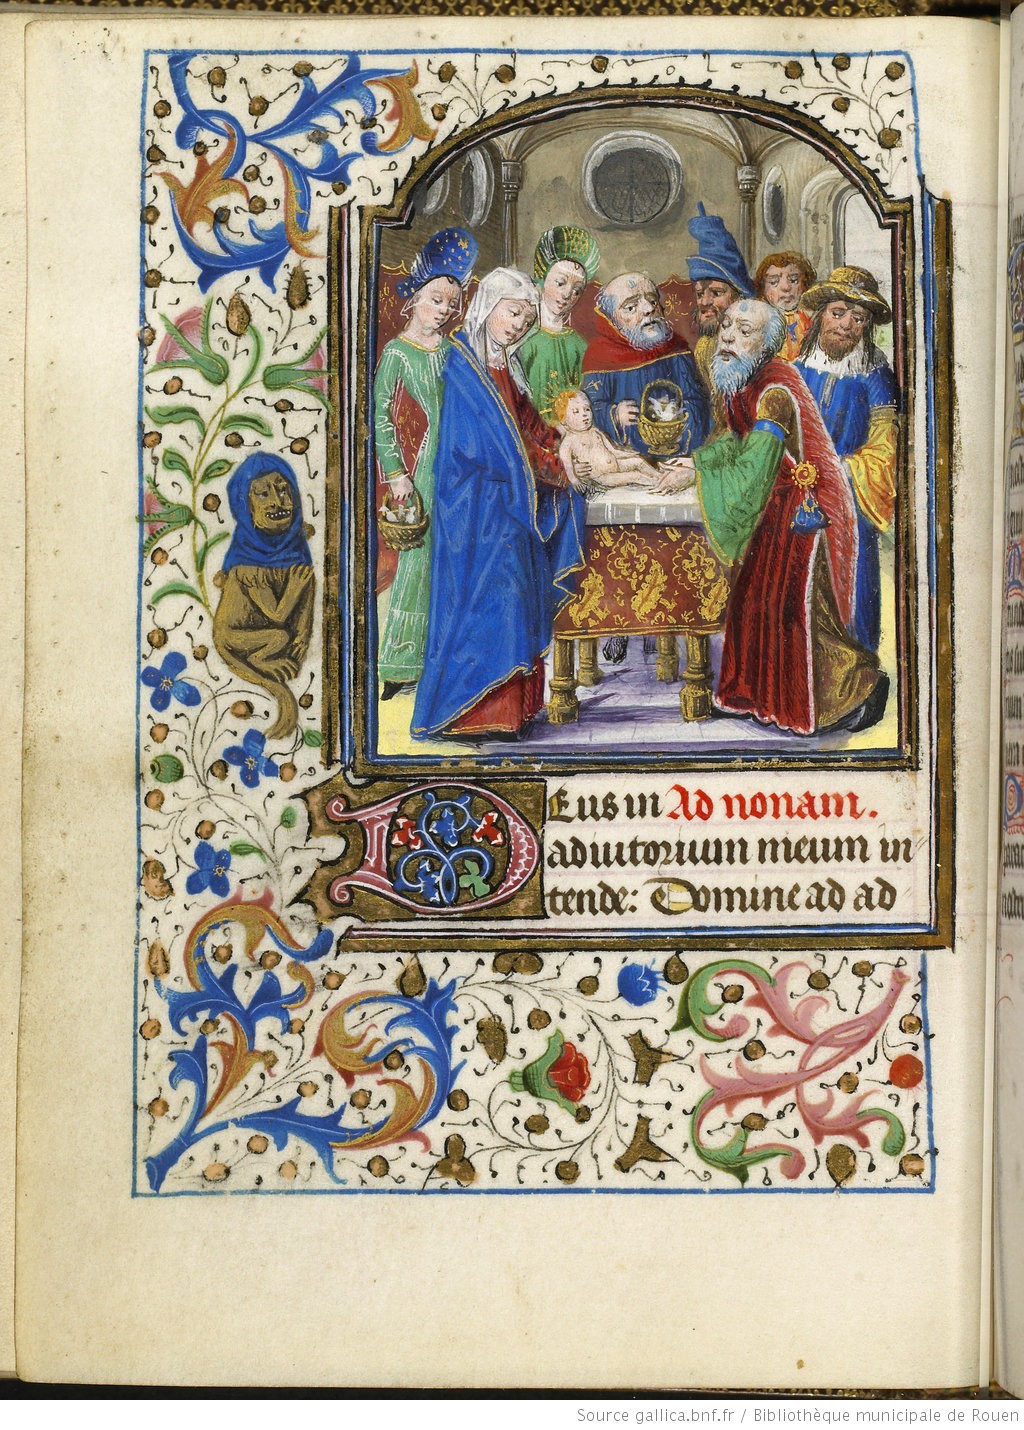 Deus in Ad nonam.
adiutorium meum in
tende: Domine ad ad
Source gallica.bnf.fr / Bibliothèque municipale de Rouen